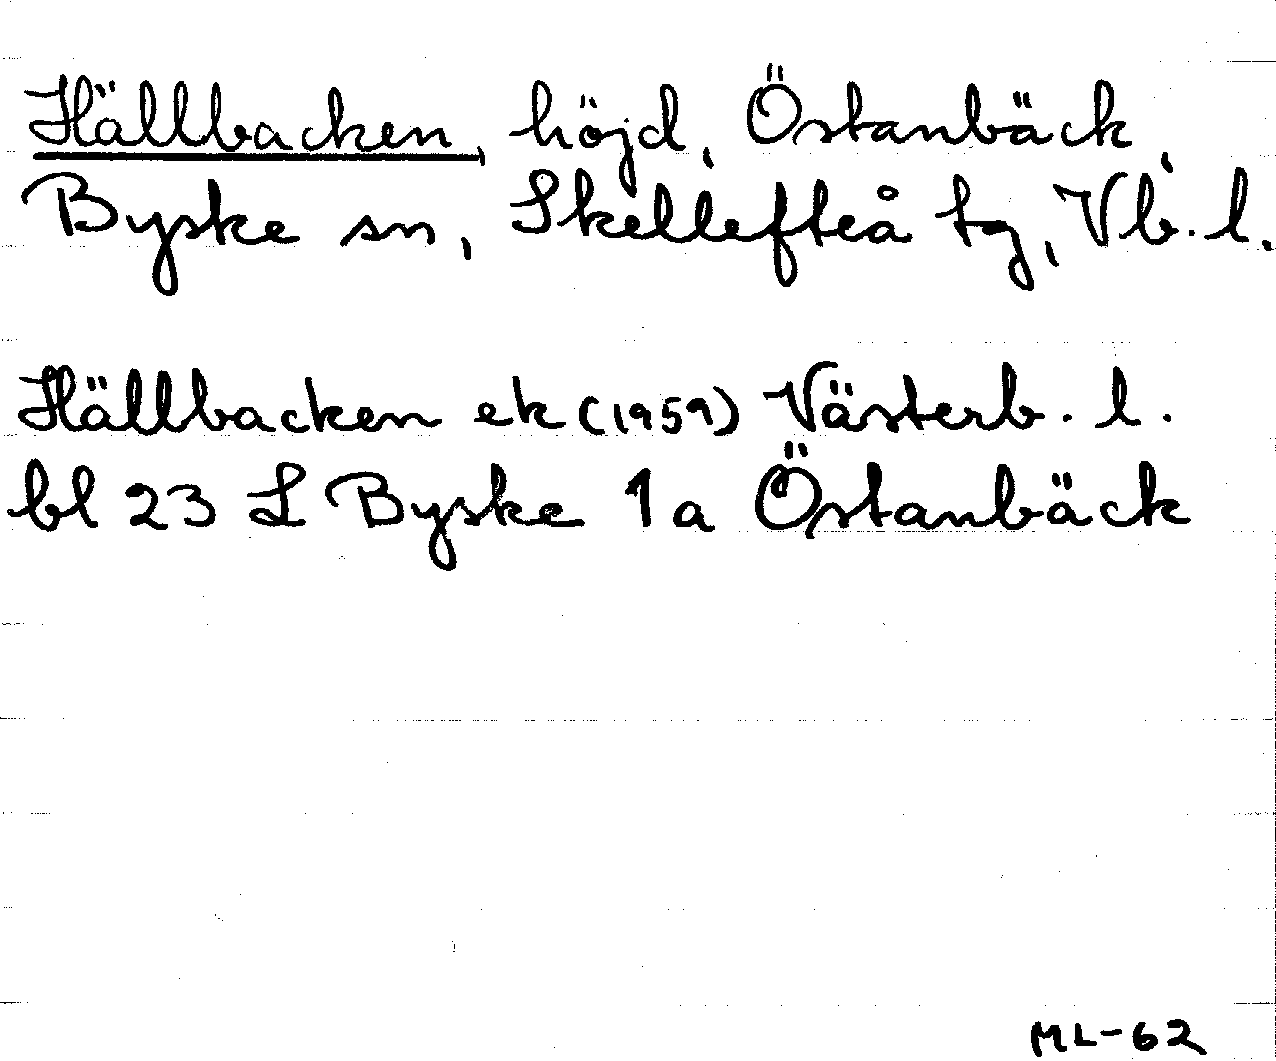 Hällbacken, höjd, Östanbäck,
Byske sn, Skellefteå tg, Vb. l.
Hällbacken ek (1959) Västerb. l.
bl 23 L Byske 1a Östanbäck
ML-62